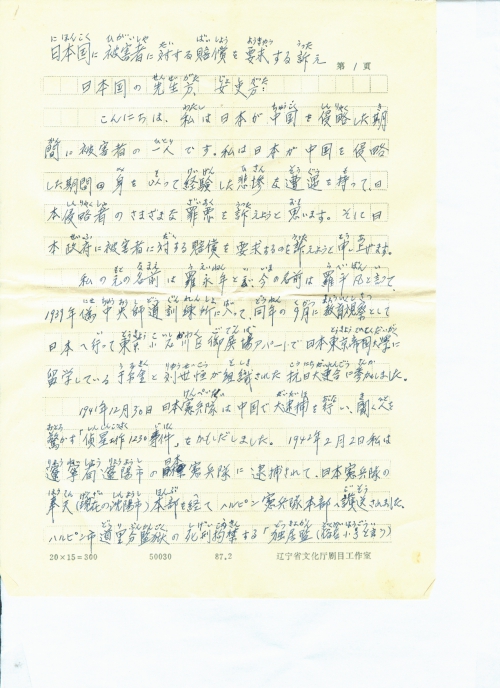 日本国に被害者に対する賠償を要求する訴え
第1頁
日本国の先生方、女史方:
こんにちは、私は日本が中国を侵略した期
間に被害者の一人です。私は日本が中国を侵略
した期間の身をもって経験した悲惨な遭遇を持って、日
本侵略者のさまざまな罪悪を訴えようと思います。そして日
本政府に被害者に対する賠償を要求するのを訴えようと申し上げます。
私の元の名前は羅永年と 今の名前は羅 と
1939年偽中央師道訓練所に入って、同年の9月に教育視察として
日本へ行って東京小石川 アパートで日本東京帝国大学に
留学している と刘世恒が組織された抗日大連合に参加しました。
1941年12月30日日本憲兵隊は中国で大逮捕を行い、聞く人を
驚かす「侦星工作1230事件」をかもしだしました。1942年2月2日私は
遼寧省遼陽市の 憲兵隊に逮捕されて、日本憲兵隊の
奉天(現在の沈陽市)本部を経て、ハルピン憲兵隊本部へ護送されました。
ハルピン市道里 監獄の死刑 する「独居监
20×15=300 50030 87.2 辽宁省文化厅剧目工作室